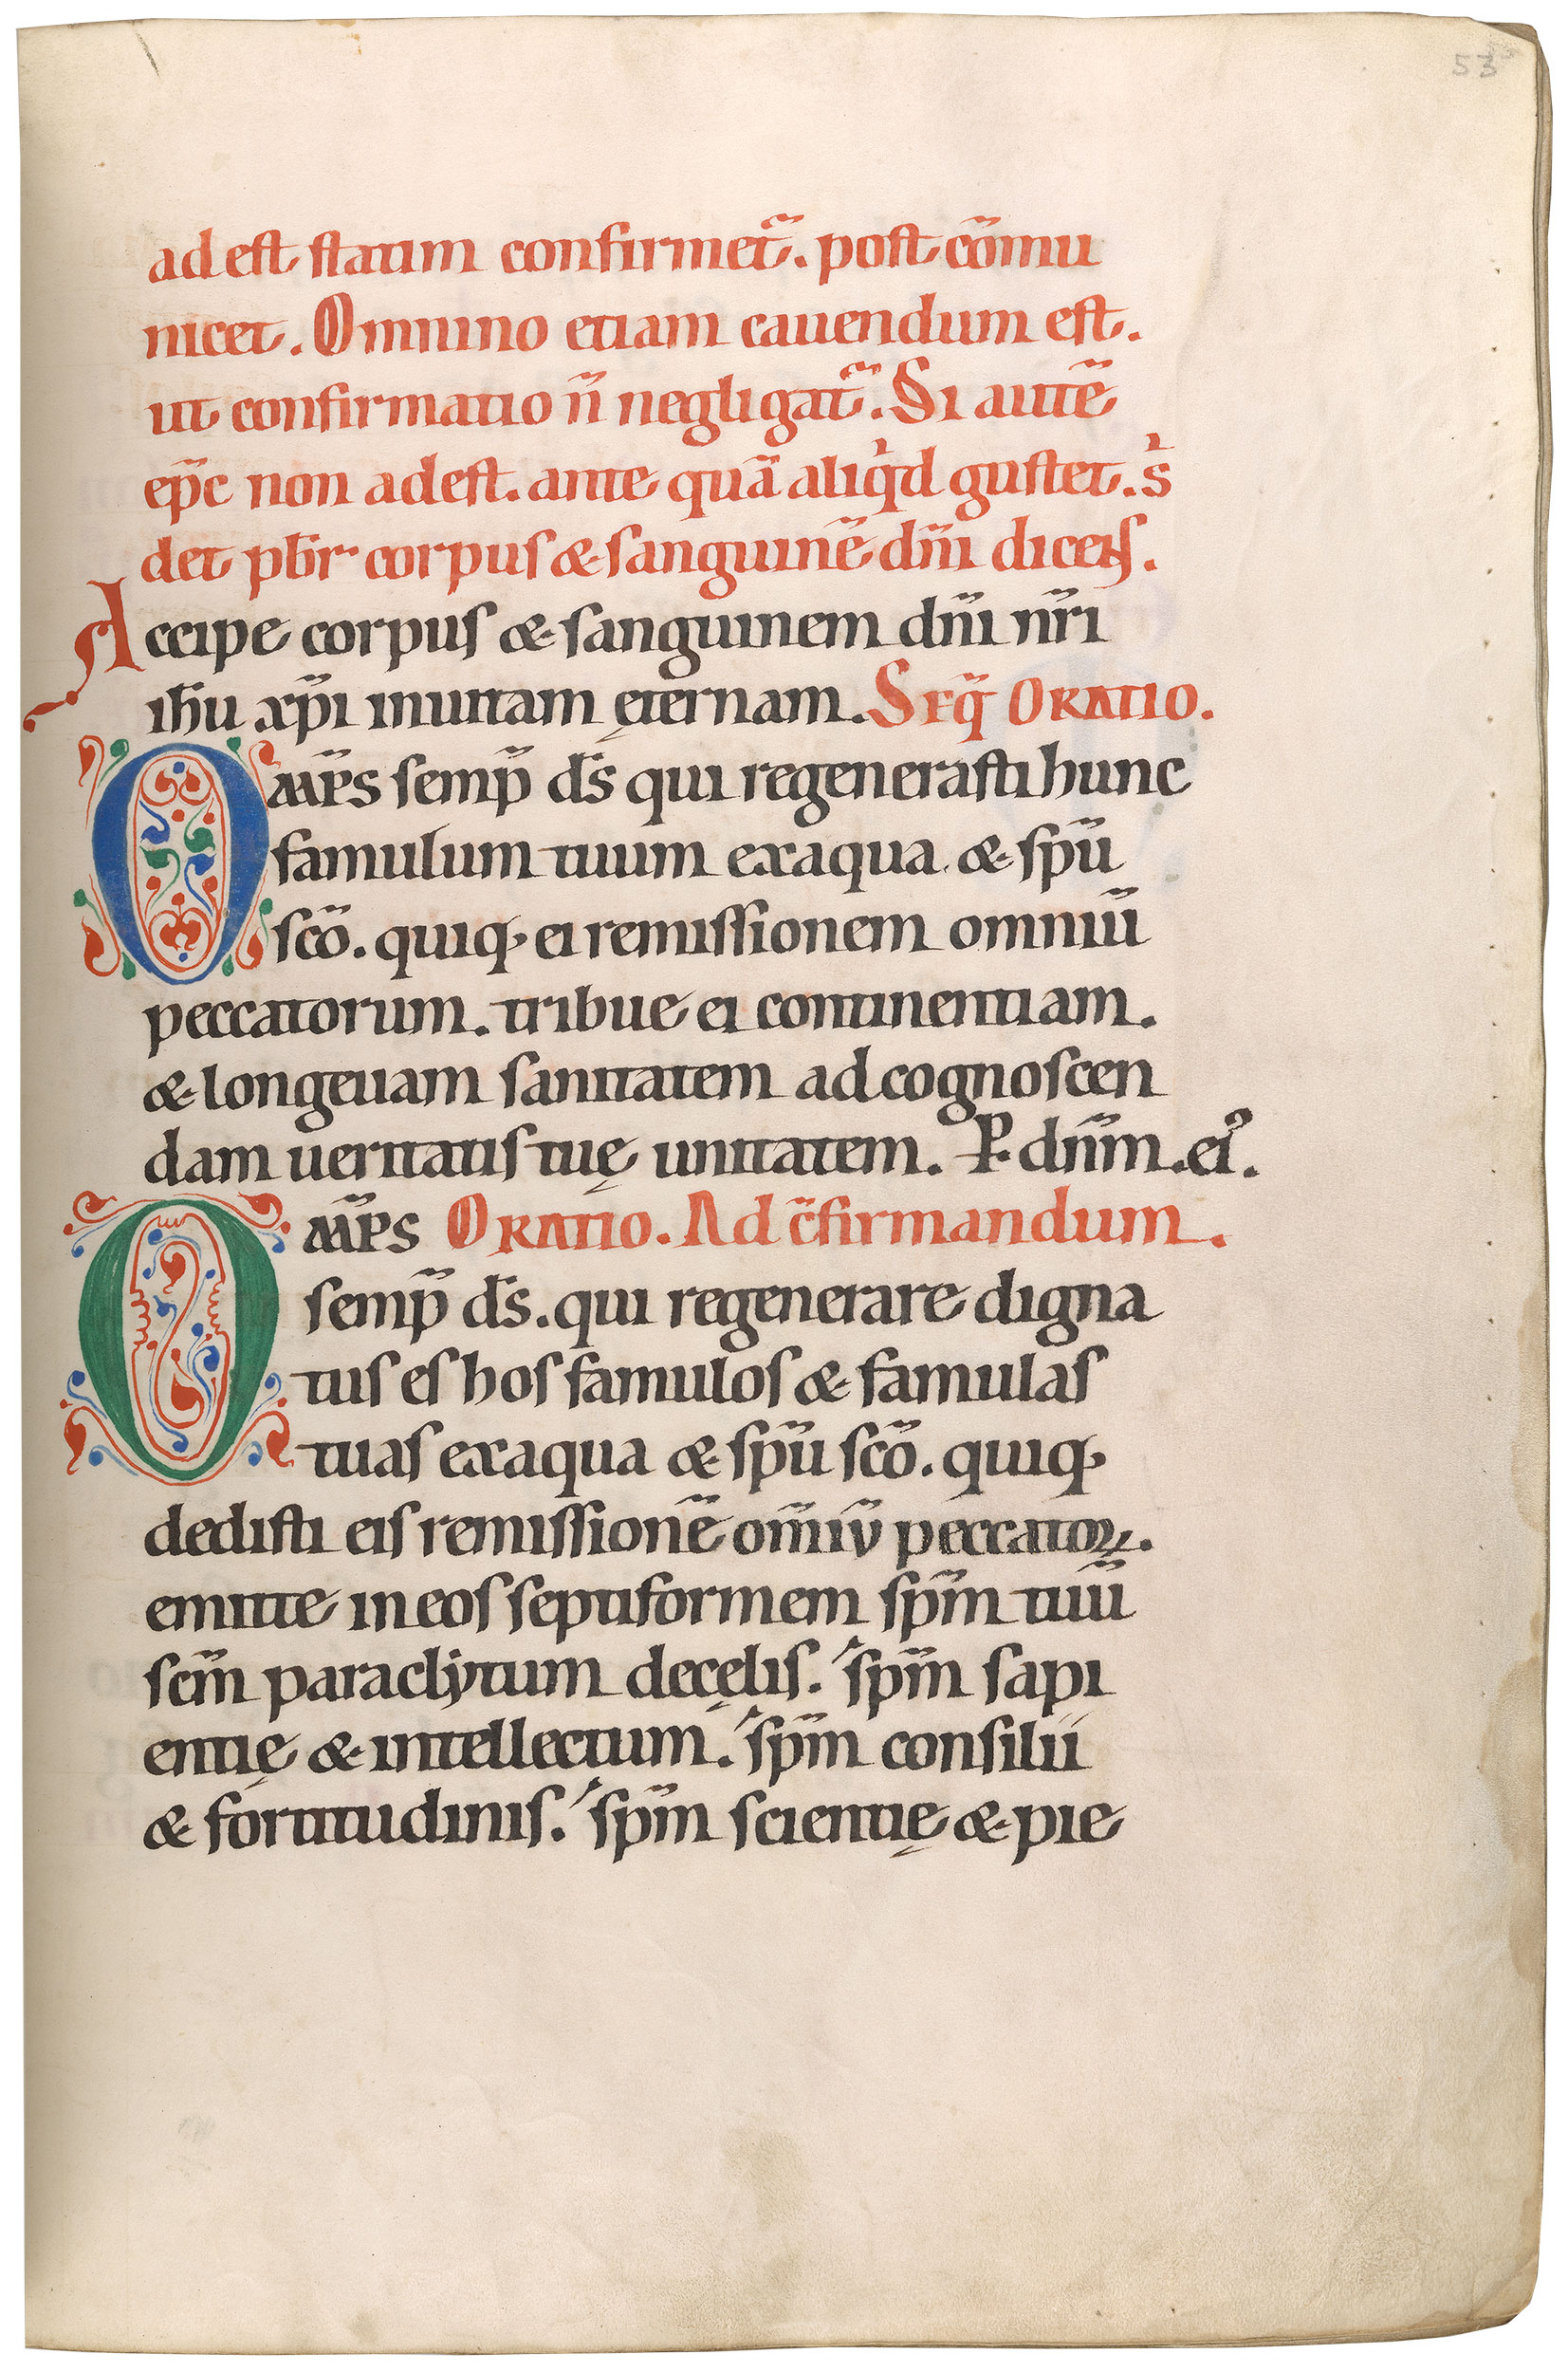 53
adest statim confirmet̃. post cõmu
nicet. Omnino etiam cauendum est.
ut confirmatio ñ negligat̃. Si autẽ
ep̃c non adest. ante quã aliqd gustet. s̃
det pb̃r corpus & sanguinẽ dñi dicens.
Accipe corpus & sanguinem dñi nr̃i
ih̃u xp̃i inuitam ęternam. Seq̃ Oratio.
Omp̃s semp̃ ds̃ qui regenerasti hunc
famulum tuum exaqua & sp̃u
sc̃o. quiq; ei remissionem omniũ
peccatorum. tribue ei continentiam.
& longeuam sanitatem ad cognoscen
dam ueritatis tuę unitatem. P. dñm. ei.
Omp̃s Oratio. Ad c̃firmandum.
semp̃ ds̃. qui regenerare digna
tus es hos famulos & famulas
tuas exaqua & sp̃u sc̃o. quiq;
dedisti eis remissionẽ om̃iũ peccatoꝝ.
emitte in eos septiformem sp̃m tuũ
sc̃m paraclytum decęlis. sp̃m sapi
entię & intellectum. sp̃m consilii
& fortitudinis. sp̃m scientię & pie